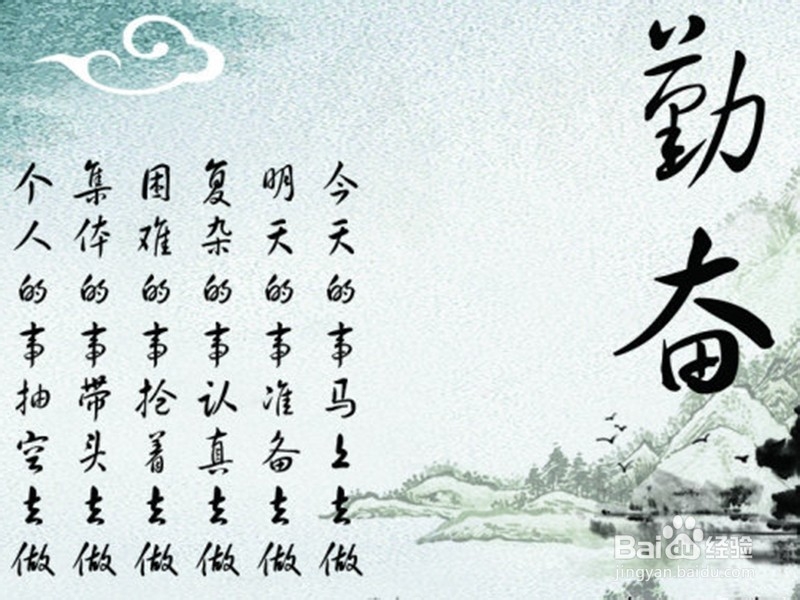 勤奋
今天的事马上去做
明天的事准备去做
复杂的事认真去做
困难的事抢着去做
集体的事带头去做
个人的事抽空去做
Baidu经验
jingyan.baidu.com